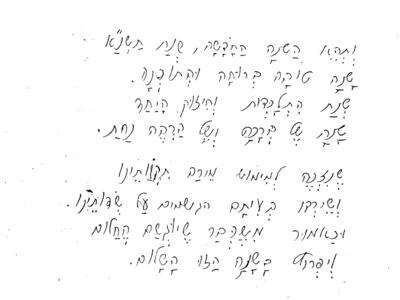 וּתְהֵא הַשָּׁנָה הַחֲדָשָׁה, שְׁנַת תַשְׁנָ"א
שָׁנָה טוֹבָה בְּרוּחָהּ וּבְתוֹכְנָהּ.
שְׁנַת הִתְלַכְּדוּת וְחִיזוּק הַיַחַד
שָׁנָה שֶׁל בְּרָכָה וְשֶׁל הַרְבֵּה נַחַת.
שֶׁנִזְכֶּה לְמִימוּשׁ מֵירַב תִקְווֹתֵינוּ
וְשֶׁיֵרְדוּ בְּעִתָּם הַגְשָׁמִים עַל שְׂדוֹתֵינוּ.
וְכָאָמוּר מִשֶׁכְּבָר שֶׁיוּגְשַׁם הַחֲלוֹם
וְיִפְרַח בַּשָׁנָה הַזוֹ הַשָׁלוֹם.